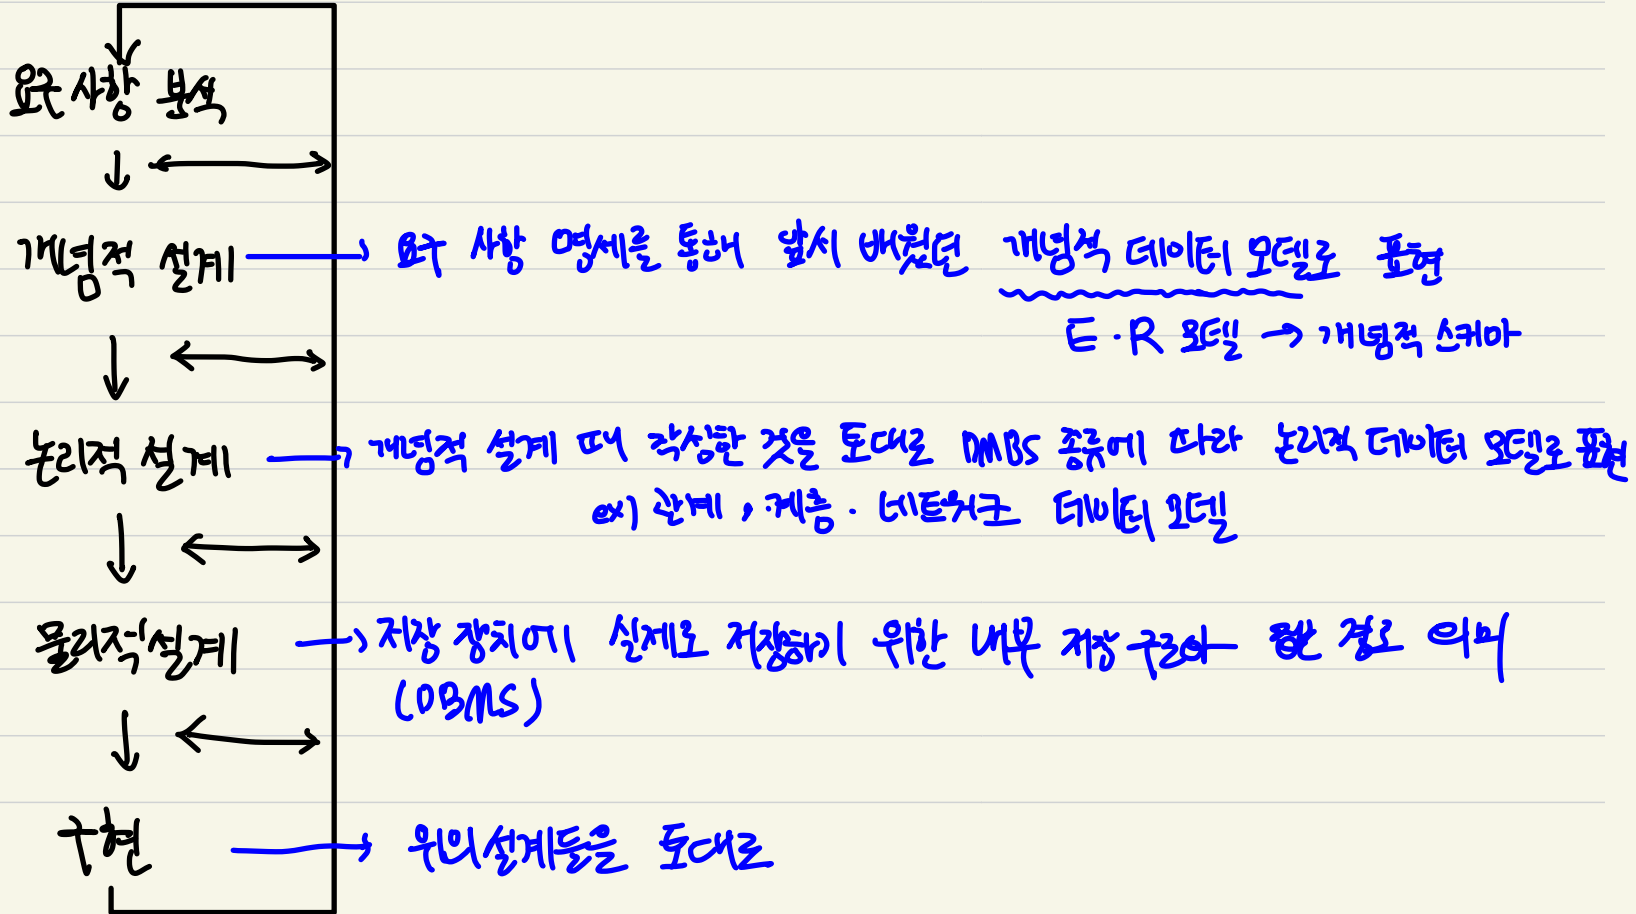 요구 사항 분석
개념적 설계 → 요구 사항 명세를 통해 앞서 배웠던 개념적 데이터 모델로 표현
E·R 모델 → 개념적 스키마
논리적 설계 → 개념적 설계 때 작성한 것을 토대로 DMBS 종류에 따라 논리적 데이터 모델로 표현
ex) 관계, 계층·네트워크 데이터 모델
물리적설계 → 저장 장치에 실제로 저장하기 위한 내부 저장 구조와 경로 의미
(DBMS)
구현 → 위의설계들을 토대로